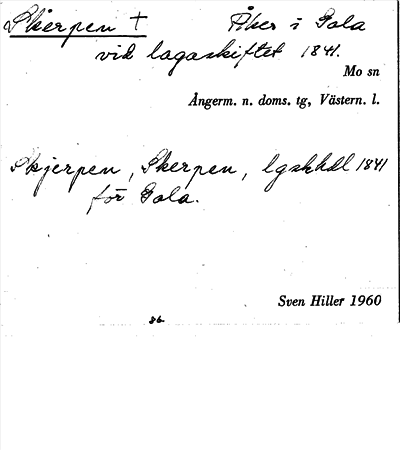 Skerpen † Åker i Gola
vid lagaskiftet 1841.
Mo sn
Ångerm. n. doms. tg, Västern. l.
Skjerpen, Skerpen, lgskhdl 1841
för Gola.
Sven Hiller 1960